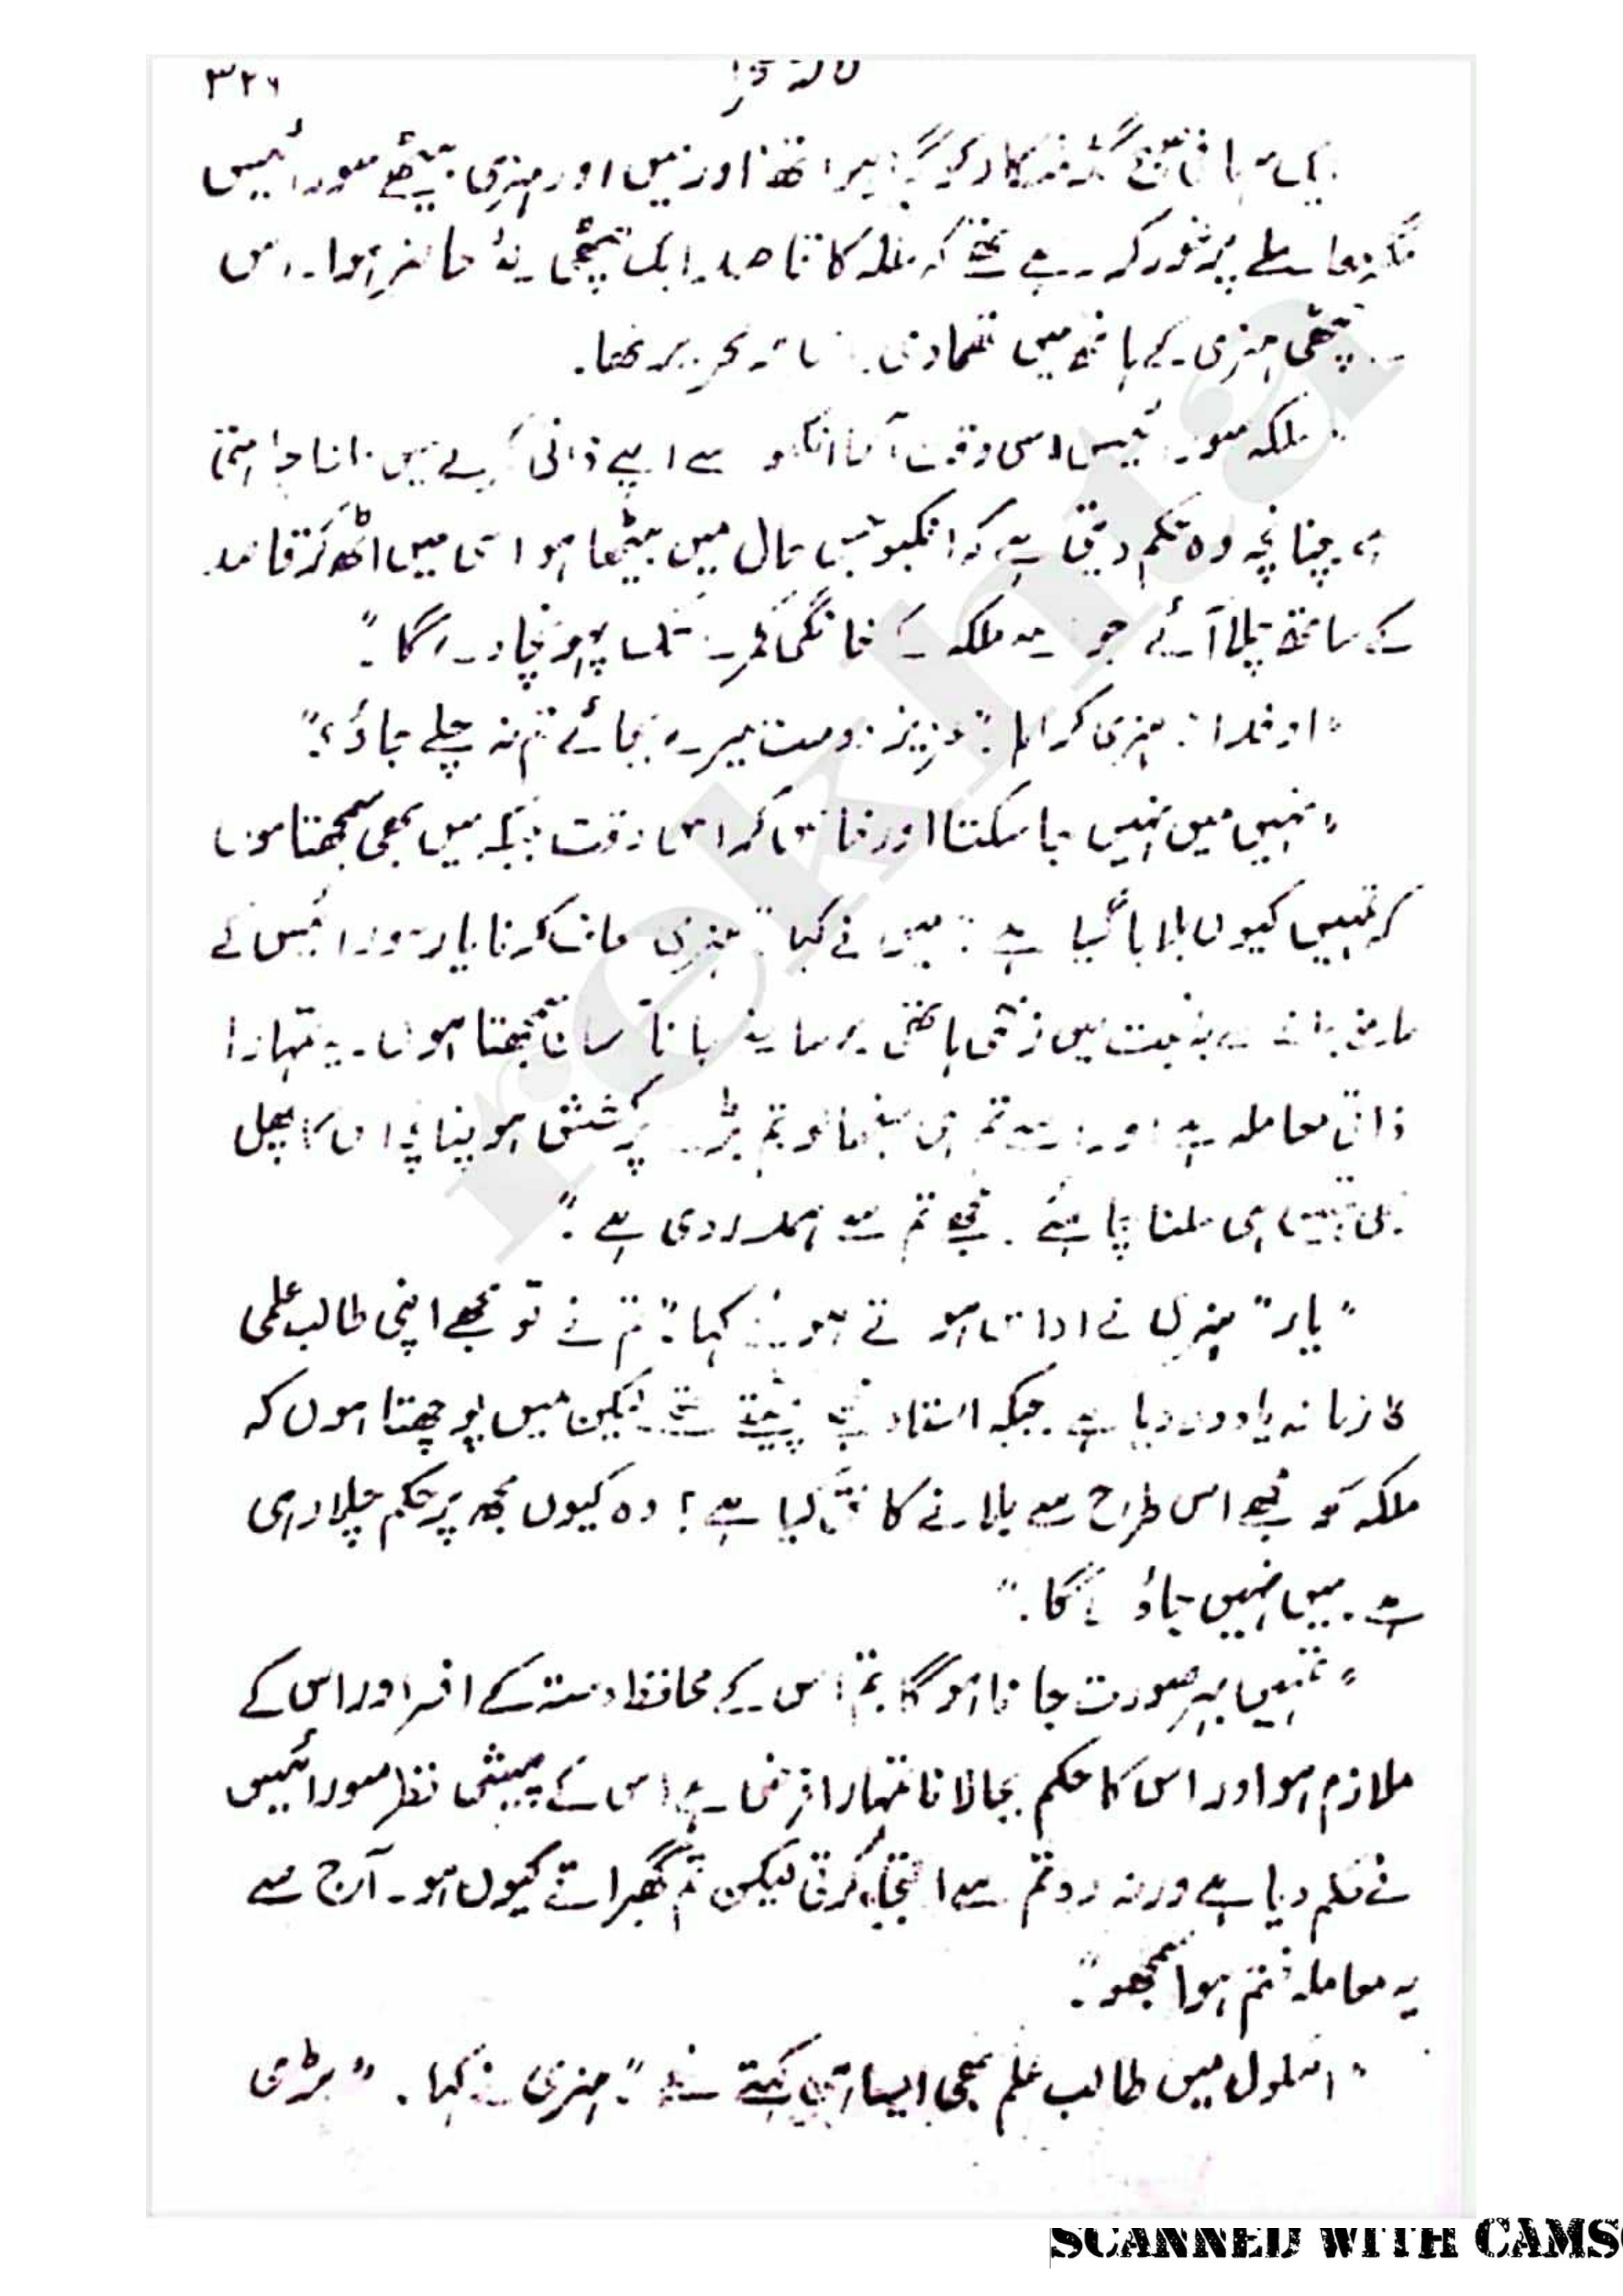 ۳۲۶
گیا تھا اور میں اور ہنری بیٹھے سورائیس
معاملے پر غور کر رہے تھے کہ ملکہ کا قاصد ایک چٹھی لئے حاضر ہوا۔ اس
چٹھی ہنری کے ہاتھ میں تھما دی۔ تحریر تھا۔
"ملکہ سورائیس اسی وقت آقا انکبو سے اپنے ذاتی کمرے میں ملنا چاہتی
ہے چنانچہ وہ حکم دیتی ہے کہ انکبو جس حال میں بیٹھا ہو اسی میں اٹھ کر قاصد
کے ساتھ چلا آئے جو اسے ملکہ کے خانگی کمرے تک پہونچا دے گا۔"
"او خدا! ہنری کراہا۔ "عزیز دوست میرے بجائے تم نہ چلے جاؤ؟"
"نہیں میں نہیں جا سکتا اور خاص کر اس وقت جبکہ میں بھی سمجھتا ہوں
کہ تمہیں کیوں بلایا گیا ہے۔" میں نے کہا "ہنری معاف کرنا یار سورائیس کے
سامنے جانے کے بہ نسبت میں زخمی ہاتھی کے سامنے جانا آسان سمجھتا ہوں۔ یہ تمہارا
ذاتی معاملہ ہے اور اسے تم ہی سنبھالو تم بڑے پرکشش ہو چنانچہ اس کا پھل
بھی تمہیں ہی ملنا چاہئے۔ مجھے تم سے ہمدردی ہے۔"
"یار" ہنری نے اداس ہوتے ہوئے کہا۔ "تم نے تو مجھے اپنی طالب علمی
کا زمانہ یاد دلا دیا ہے۔ جبکہ استاد مجھے پیٹتے تھے لیکن میں پوچھتا ہوں کہ
ملکہ کو مجھے اس طرح سے بلانے کا حق کیا ہے؟ وہ کیوں مجھ پر حکم چلا رہی
ہے۔ میں نہیں جاؤں گا۔"
"تمہیں بہر صورت جانا ہوگا تم اس کے محافظ دستہ کے افسر اور اس کے
ملازم ہو اور اس کا حکم بجا لانا تمہارا فرض ہے اس کے پیش نظر سورائیس
نے حکم دیا ہے ورنہ وہ تم سے التجا کرتی لیکن تم گھبراتے کیوں ہو۔ آج سے
یہ معاملہ ختم ہوا سمجھو۔"
"اسکول میں طالب علم بھی ایسا ہی کہتے تھے۔" ہنری نے کہا۔ "بڑی
SCANNED WITH CAMS
rekhta